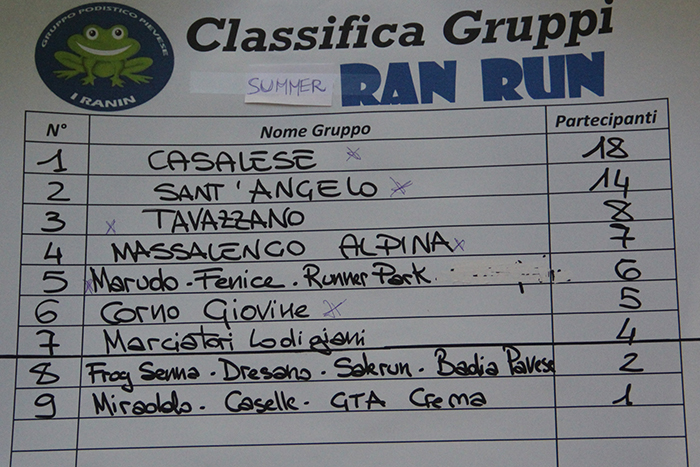 GRUPPO PODISTICO PIEVESE
I RANIN
Classifica Gruppi
SUMMER RAN RUN
N° Nome Gruppo Partecipanti
1 CASALESE 18
2 SANT'ANGELO 14
3 TAVAZZANO 8
4 MASSALENGO ALPINA 7
5 Marudo - Fenice - Runner Park 6
6 Corno Giovine 5
7 Marciatori Lodigiani 4
8 Frog Senna - Dresano - Salerun - Badia Pavese 2
9 Miradolo - Caselle - GTA Crema 1